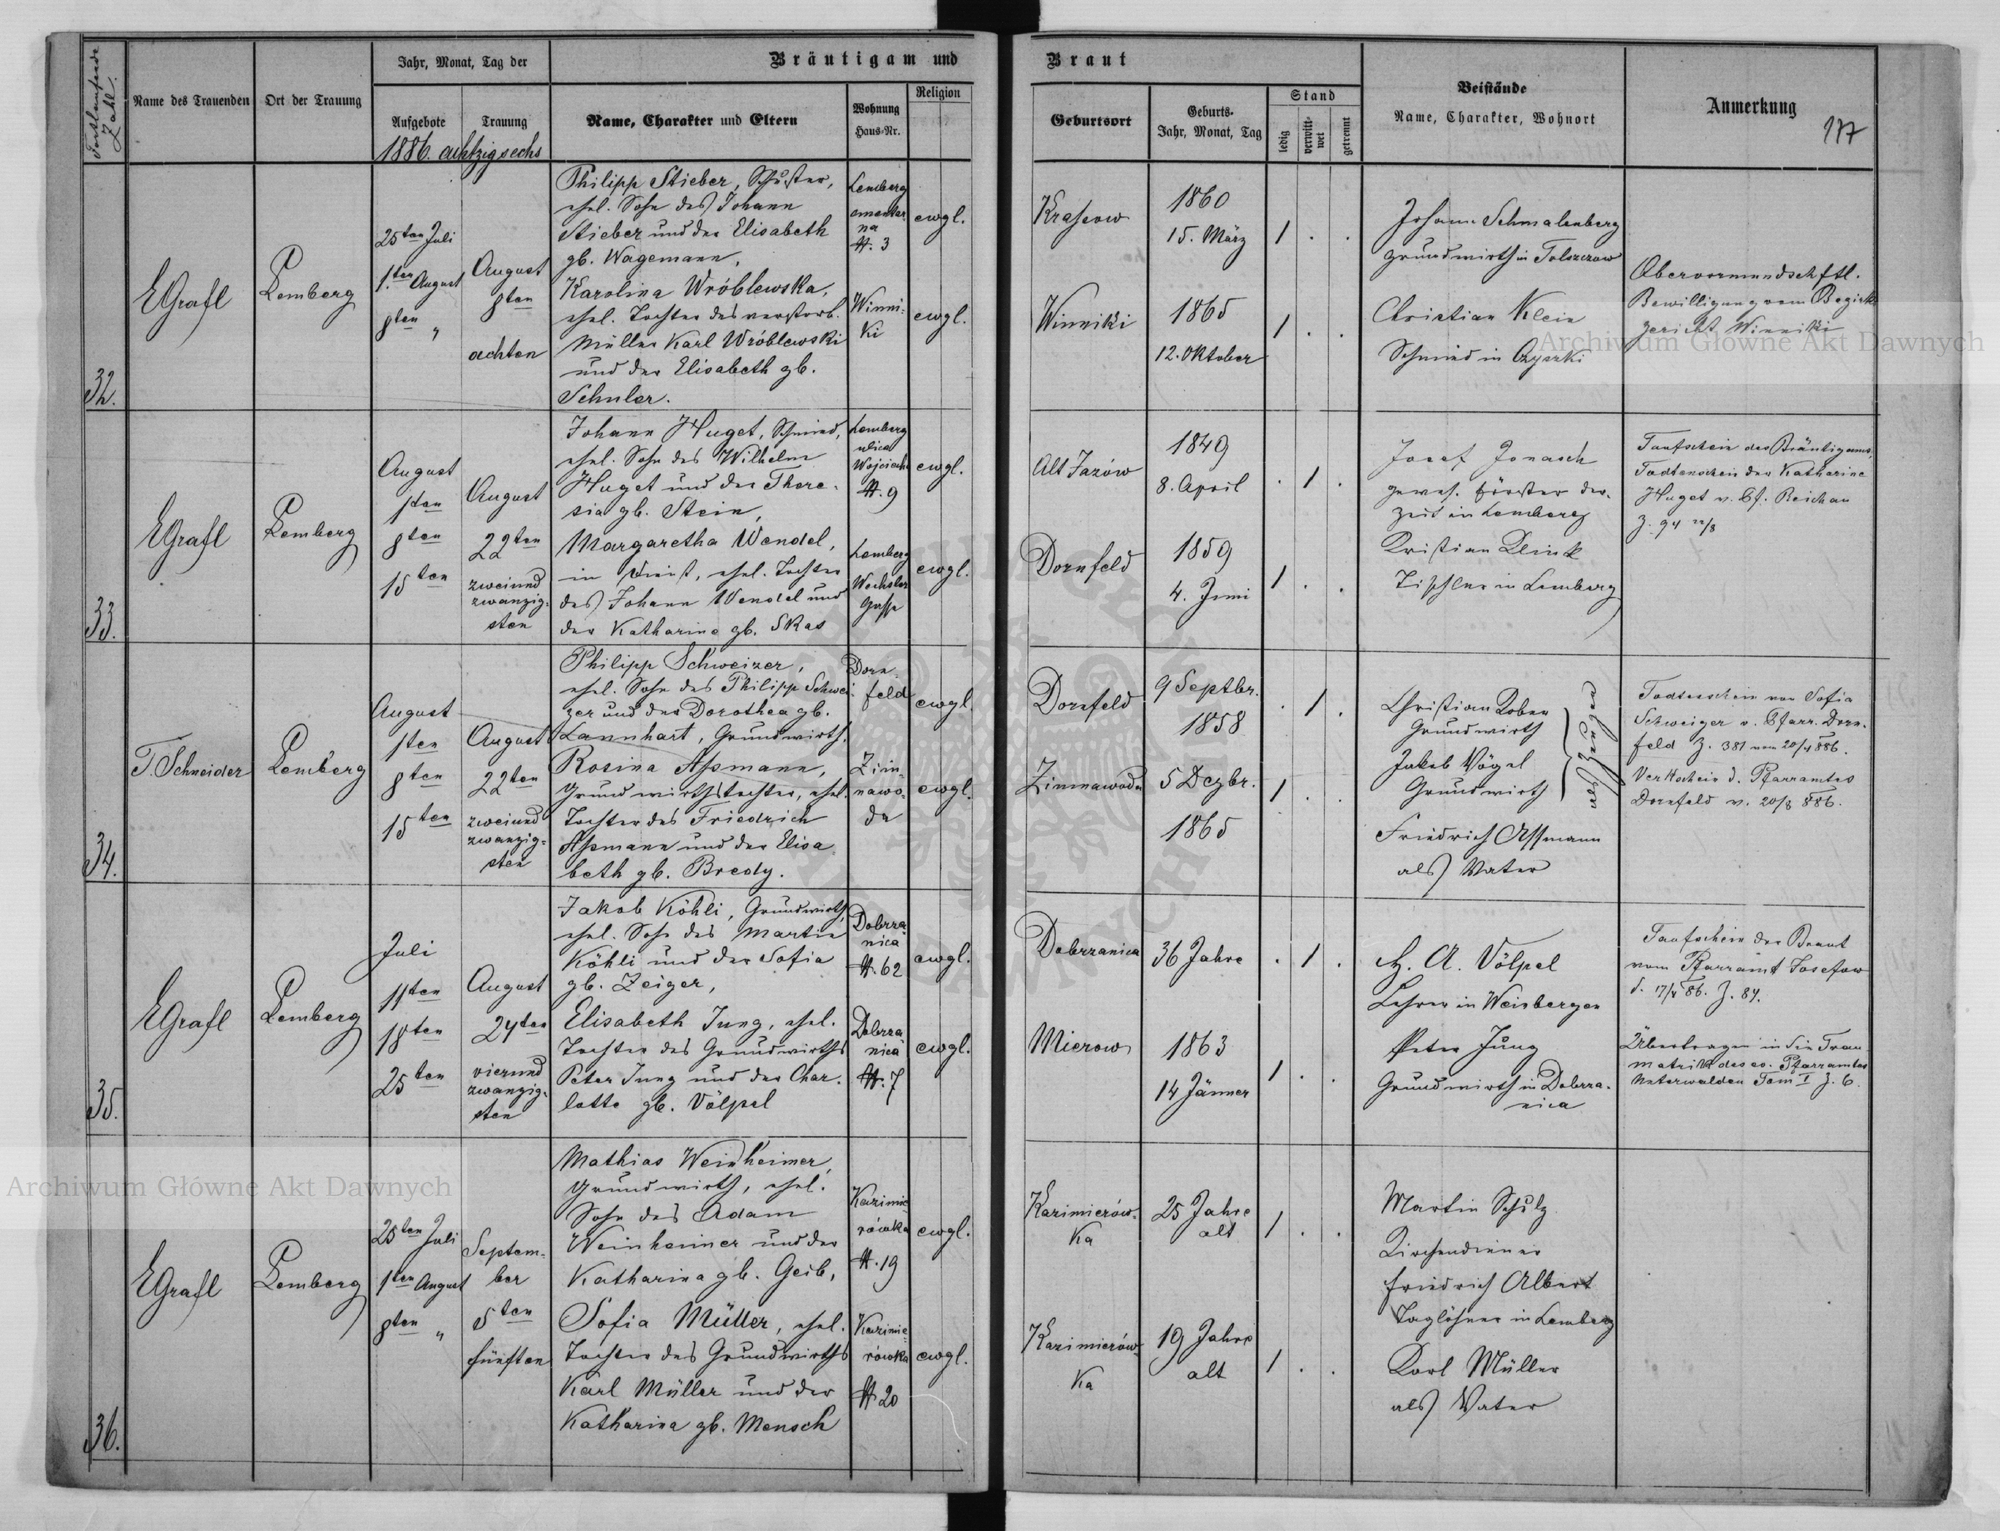 Fortlaufende Zahl.
Name des Trauenden
Ort der Trauung
Jahr, Monat, Tag der
Aufgebote
Trauung
1886. achtzigsechs
Bräutigam und
Name, Charakter und Eltern
Wohnung
Haus-Nr.
Religion
Braut
Geburtsort
Geburts-
Jahr, Monat, Tag
Stand
ledig
verwitt-
wet
getrennt
Beistände
Name, Charakter, Wohnort
Anmerkung
177
32.
EGrafl
Lemberg
25ten Juli
1.ten August
8ten "
August
8ten
achten
Philipp Stieber, Schuster,
ehel. Sohn des Johann
Stieber und der Elisabeth
gb. Wagemann,
Karolina Wróblewska,
ehel. Tochter des verstorb.
Müller Karl Wróblewski
und der Elisabeth gb.
Schuler.
Lemberg
na
#. 3
Winni-
ki
ewgl.
ewgl.
Winniki
1860
15. März
1865
12. Oktober
1 . .
1 . .
Johann Schmalenberg
Grundwirth in
Christian Klein
Schmied in Czyszki
Obervormundschftl.
Bewilligung vom Bezirks
gericht Winniki
33.
EGrafl
Lemberg
August
1ten
8ten
15ten
August
22ten
zweiund
zwanzig-
sten
Johann Huget, Schmied,
ehel. Sohn des Wilhelm
Huget und der There-
sia gb. Stein,
Margaretha Wendel,
in Dienst, ehel. Tochter
des Johann Wendel und
der Katharina gb. Skas
Lemberg
ulica
#. 9
Lemberg
Wechsler
Gasse
ewgl.
ewgl.
Alt Jazów
Dornfeld
1849
8. April
1859
4. Juni
. 1 .
1 . .
Josef Jonasch
gewes. Förster der-
zeit in Lemberg
Kristian Klink
Tischler in Lemberg
Taufschein des Bräutigams,
Todtenschein der Katharine
Huget v. Pf. Reichau
Z. 94 22/8
34.
T. Schneider
Lemberg
August
1ten
8ten
15ten
August
22ten
zweiund
zwanzig-
sten
Philipp Schweizer,
ehel. Sohn des Philipp Schwei-
zer und der Dorothea gb.
Lannhart, Grundwirth.
Rosina Aßmann,
Grundwirthstochter, ehel.
Tochter des Friedrich
Aßmann und der Elisa
beth gb. Bredy.
Dorn-
feld
Zim-
nawo-
da
ewgl.
ewgl.
Dornfeld
Zimnawoda
9 Septbr.
1858
5 Dezbr.
1865
. 1 .
1 . .
Christian Kober
Grundwirth
Jakob Vögel
Grundwirth
als Zeugen
Friedrich Assmann
als Vater
Todtenschein von Sofia
Schweizer v. Pfarr. Dorn-
feld Z. 381 von 20/4 886.
Verkschein d. Pfarramtes
Dornfeld v. 20/8 886.
35.
EGrafl
Lemberg
Juli
11ten
18ten
25ten
August
24ten
vierund
zwanzig-
sten
Jakob Köhli, Grundwirth,
ehel. Sohn des Martin
Köhli und der Sofia
gb. Zeiger,
Elisabeth Jung, ehel.
Tochter des Grundwirths
Peter Jung und der Char-
lotte gb. Völpel
Dobrza
nica
#. 62
Dobrza
nica
#. 7
ewgl.
ewgl.
Dobrzanica
Mierow
36 Jahre
1863
14 Jänner
. 1 .
1 . .
H. A. Völpel
Lehrer in Weinbergen
Peter Jung
Grundwirth in Dobrza-
nica
Taufschein der Braut
vom Pfarramt Josefow
d. 17/4 86. Z. 84.
Übertragen in die Trau
matrik des ev. Pfarramtes
Unterwalden Tom I Z. 6.
36.
EGrafl
Lemberg
25ten Juli
1ten August
8ten "
Septem-
ber
5ten
fünften
Mathias Weinheimer,
Grundwirth, ehel.
Sohn des Adam
Weinheimer und der
Katharina gb. Geib,
Sofia Müller, ehel.
Tochter des Grundwirths
Karl Müller und der
Katharina gb. Mensch
Kazimie-
rówka
#. 19
Kazimie-
rówka
#. 20
ewgl.
ewgl.
Kazimierów-
ka
Kazimierów-
ka
25 Jahre
alt
19 Jahre
alt
1 . .
1 . .
Martin Schulz
Kirchendiener
Friedrich Albert
Taglöhner in Lemberg
Karl Müller
als Vater
Archiwum Główne Akt Dawnych
Archiwum Główne Akt Dawnych